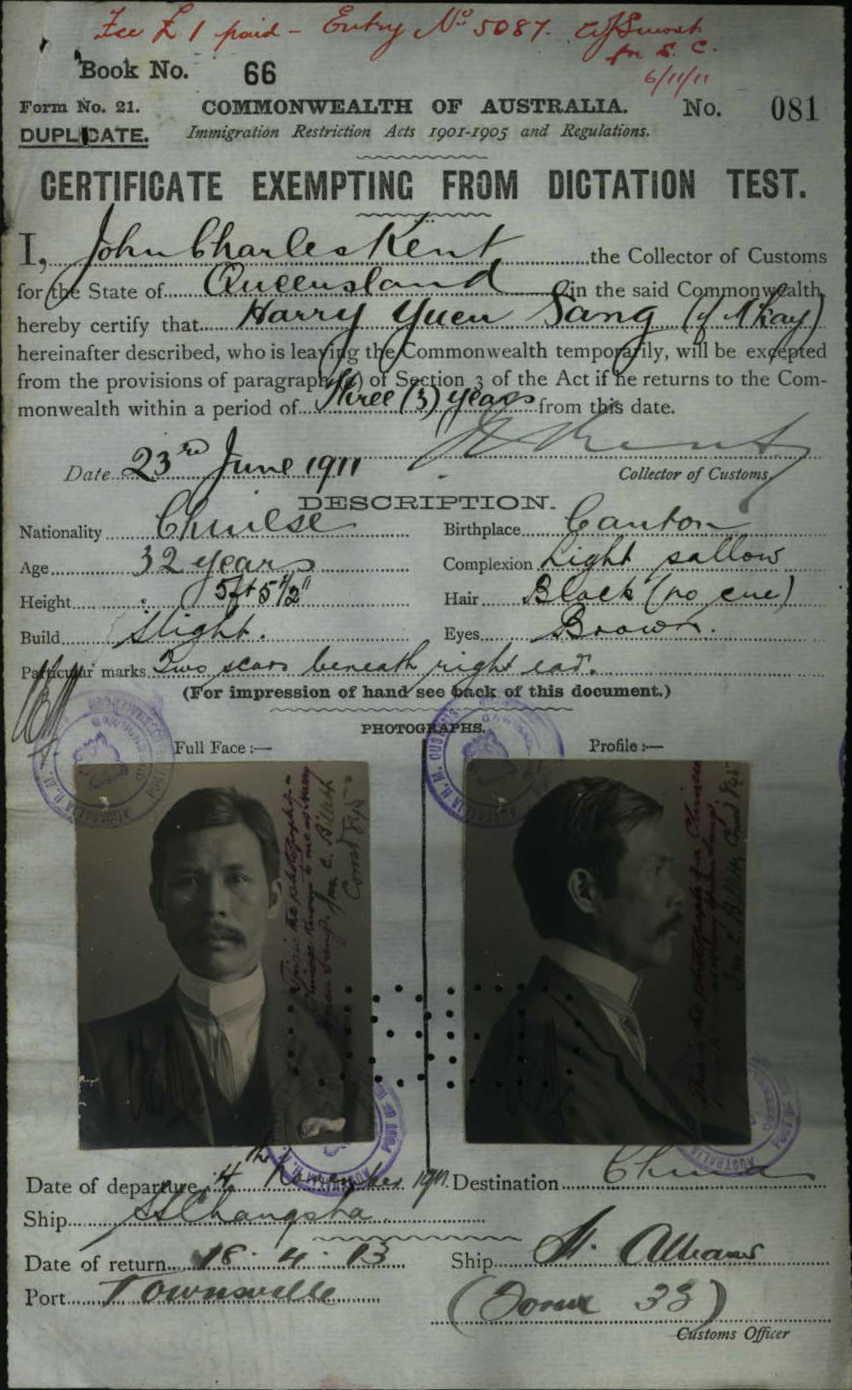 Fee £1 paid – Entry No 5087.
for S. C.
6/11/11
Book No. 66
Form No. 21. COMMONWEALTH OF AUSTRALIA. No. 081
DUPLICATE. Immigration Restriction Acts 1901-1905 and Regulations.
CERTIFICATE EXEMPTING FROM DICTATION TEST.
I, John Charles Kent the Collector of Customs
for the State of Queensland in the said Commonwealth,
hereby certify that Harry Yuen Sang
hereinafter described, who is leaving the Commonwealth temporarily, will be excepted
from the provisions of paragraph (a) of Section 3 of the Act if he returns to the Com-
monwealth within a period of Three (3) years from this date.
Date 23rd June 1911
Collector of Customs.
DESCRIPTION.
Nationality Chinese Birthplace Canton
Age 32 years Complexion Light sallow
Height 5ft 5½" Hair Black (no cue)
Build Slight. Eyes Brown.
Particular marks Two scars beneath right ear.
(For impression of hand see back of this document.)
PHOTOGRAPHS.
Full Face :— Profile :—
Date of departure 4th November 1911. Destination China
Ship SS Changsha
Date of return 18. 4. 13 Ship St. Albans
Port Townsville
(Form 33)
Customs Officer